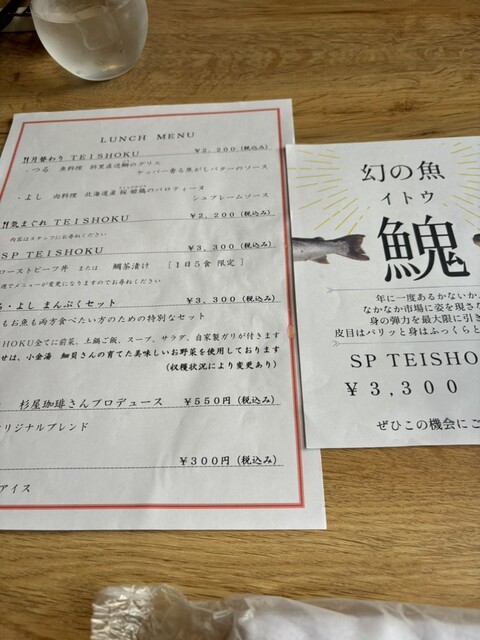 LUNCH MENU
月替わり TEISHOKU ￥2,200(税込み)
・つる 魚料理 斜里直送鯛のグリエ
ケッパー香る焦がしバターのソース
・よし 肉料理 北海道産 桜姫鶏のバロティーヌ
シュプレームソース
気まぐれ TEISHOKU ￥2,200(税込み)
内容はスタッフにお尋ねください
SP TEISHOKU ￥3,300(税込み)
ローストビーフ丼 または 鯛茶漬け [1日5食 限定]
でメニューが変更になりますのでお尋ねください
・よし まんぷくセット ￥3,300(税込み)
もお魚も両方食べたい方のための特別なセット
HOKU全てに前菜、土鍋ご飯、スープ、サラダ、自家製ガリが付きます
せは、小金湯 細貝さんの育てた美味しいお野菜を使用しております
(収穫状況により変更あり)
杉屋珈琲さんプロデュース ￥550円(税込み)
リジナルブレンド
￥300円(税込み)
アイス
幻の魚
イトウ
鬼
年に一度あるかないか
なかなか市場に姿を現さな
身の弾力を最大限に引き
皮目はパリッと身はふっくらと
SP TEISHO
￥3,300
ぜひこの機会にご